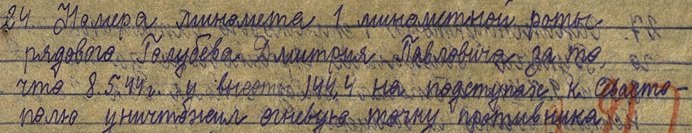 24. Номера миномета 1 минометной роты
рядового Голубева Дмитрия Павловича за то,
что 8.5.44г. у высоты 144,4 на подступах к Севасто-
полю уничтожил огневую точку противника.